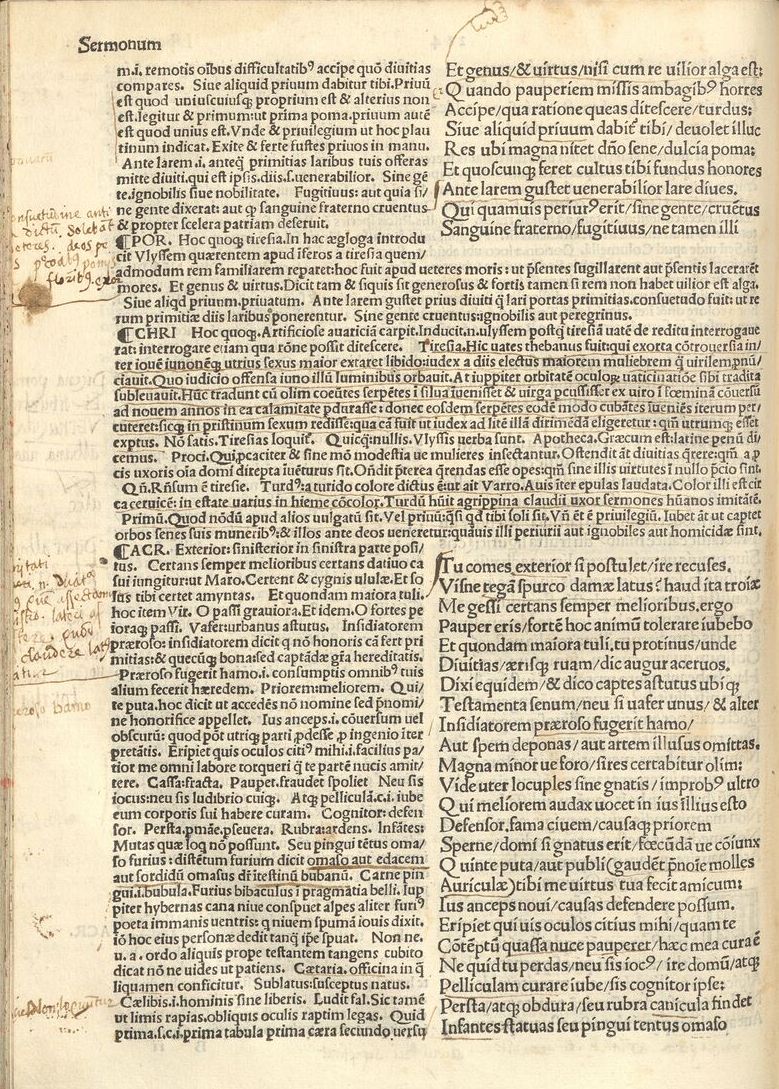 Sermonum
m.i. remotis oîbus difficultatibꝰ accipe quō diuitias
compares. Siue aliquid priuum dabitur tibi. Priuū
est quod uniuscuiusq; proprium est & alterius non
est. legitur & primum: ut prima poma. priuum autē
est quod unius est. Vnde & priuilegium ut hoc plau
tinum indicat. Exite & ferte fustes priuos in manu.
Ante larem .i. anteq̄ primitias laribus tuis offeras
mitte diuiti. qui est ipsis. diis. s. uenerabilior. Sine gē
te. ignobilis siue nobilitate. Fugitiuus: aut quia si/
ne gente dixerat: aut q̱ sanguine fraterno cruentus
& propter scelera patriam deseruit.
¶POR. Hoc quoq; tiresia. In hac ægloga introdu
cit Vlyssem quærentem apud iferos a tiresia quem/
admodum rem familiarem reparet: hoc fuit apud ueteres moris: ut p̄sentes sugillarent aut p̄sentis lacerarēt
mores. Et genus & uirtus. Dicit tam & siquis sit generosus & fortis tamen si rem non habet uilior est alga.
Siue aliqd priuum. priuatum. Ante larem gustet prius diuiti q̄ lari portas primitias. consuetudo fuit: ut re
rum primitiæ diis laribus ponerentur. Sine gente cruentus: ignobilis aut peregrinus.
¶CHRI Hoc quoq;. Artificiose auariciā carpit. Inducit. n. ulyssem postq̄ tiresiā uatē de reditu interrogaue
rat: interrogare etiam qua rōne possit ditescere. Tiresia. Hic uates thebanus fuit: qui exorta cōtrouersia in/
ter iouē iunonēq; utrius sexus maior extaret libido: iudex a diis electus maiorem muliebrem q̄ uirilem, pnū/
ciauit. Quo iudicio offensa iuno illū luminibus orbauit. At iuppiter orbitatē oculoꝝ uaticinatiōe sibi tradita
subleuauit. Hūc tradunt cū olim coeūtes serpētes ī silua īuenisset & uirga pcussisset ex uiro ī fœminā cōuersū
ad nouem annos in ea calamitate pdurasse: donec eosdem serpētes eodē modo cubātes īueniēs iterum per/
cuteret: sicq; in pristinum sexum redisse: qua cā fuit ut iudex ad litē illā dirimēdā eligeretur: qm̄ utrumq; esset
exptus. Nō satis. Tiresias loquit᷑. Quicq̄: nullis. Vlyssis uerba sunt. Apotheca. Græcum est: latine penū di/
cemus. Proci. Qui, pcaciter & sine mō modestia ue mulieres insectantur. Ostendit āt diuitias q̄rere: qm̄ a p
cis uxoris oīa domi direpta iuēturus sit. Oñdit p̄terea q̄rendas esse opes: qm̄ sine illis uirtutes ī nullo p̄cio sint.
Qñ. Rñsum ē tiresie. Turdꝰ: a turido colore dictus ē: ut ait Varro. Auis īter epulas laudata. Color illi est cit
ca ceruicē: in estate uarius in hieme cōcolor. Turdū hūit agrippina claudii uxor sermones hūanos imitātē.
Primū. Quod nōdū apud alios uulgatū sit. Vel priuū: q̄si qd tibi soli sit. Vñ ēt ē priuilegiū. Iubet āt ut captet
orbos senes suis muneribꝰ: & illos ante deos ueneretur: quāuis illi periurii aut ignobiles aut homicidæ sint.
¶ACR. Exterior: sinisterior in sinistra parte posi/
tus. Certans semper melioribus certans datiuo ca
sui iungitur: ut Maro. Certent & cygnis ululæ. Et so
lus tibi certet amyntas. Et quondam maiora tuli.
hoc item Vir. O passi grauiora. Et idem. O fortes pe
ioraq; passi. Vafer: urbanus astutus. Insidiatorem
præroso: insidiatorem dicit q nō honoris cā fert pri
mitias: & quecūq; bona: sed captādæ gīa hereditatis.
Præroso fugerit hamo .i. consumptis omnibꝰ tuis
alium fecerit hæredem. Priorem: meliorem. Qui/
te puta. hoc dicit ut accedēs nō nomine sed p̄nomi/
ne honorifice appellet. Ius anceps .i. cōuersum uel
obscurū: quod pōt utriq; parti, pdesse, p ingenio īter
pretātis. Eripiet quis oculos citiꝰ mihi .i. facilius pa/
tior me omni labore torqueri q̄ te partē nucis amit/
tere. Cassa: fracta. Paupet. fraudet spoliet Neu sis
iocus: neu sis ludibrio cuiq;. Atq; pelliculā .c.i. iube
eum corporis sui habere curam. Cognitor: defen
sor. Persta. pmāe, pseuera. Rubra: ardens. Infātes:
Mutas quæ loq̄ nō possunt. Seu pingui tētus oma/
so furius: distētum furium dicit omaso aut edacem
aut sordidū omasus dr̄ itestinū bubanū. Carne pin
gui .i. bubula. Furius bibaculus ī pragmatia belli. Iup
piter hybernas cana niue conspuet alpes aliter furiꝰ
poeta immanis uentris: q niuem spumā iouis dixit.
iō hoc eius personæ dedit tanq̄ ipse spuat. Non ne.
u. a. ordo aliquis prope testantem tangens cubito
dicat nō ne uides ut patiens. Cætaria. officina in q̄
liquamen conficitur. Sublatus: susceptus natus.
Cælibis .i. hominis sine liberis. Ludit fal. Sic tamē
ut limis rapias. obliquis oculis raptim legas. Quid
prima. s. c. i. prima tabula prima cæra secundo uersu
Et genus/& uirtus/nisi cum re uilior alga est:
Quando pauperiem missis ambagibꝰ horres
Accipe/qua ratione queas ditescere/turdus:
Siue aliquid priuum dabit᷑ tibi/ deuolet illuc
Res ubi magna nitet dn̄o sene/dulcia poma:
Et quoscunq; feret cultus tibi fundus honores
Ante larem gustet uenerabilior lare diues.
Qui quamuis periurꝰ erit/sine gente/cruētus
Sanguine fraterno/fugitiuus/ne tamen illi
Tu comes exterior si postulet/ire recuses.
Visne tegā spurco damæ latus? haud ita troiæ
Me gessi certans semper melioribus. ergo
Pauper eris/fortē hoc animū tolerare iubebo
Et quondam maiora tuli. tu protinus/unde
Diuitias/ærisq; ruam/dic augur aceruos.
Dixi equidem/& dico captes astutus ubiq;
Testamenta senum/neu si uafer unus/ & alter
Insidiatorem præroso fugerit hamo/
Aut spem deponas/aut artem illusus omittas.
Magna minor ue foro/si res certabitur olim:
Vide uter locuples sine gnatis / improbꝰ ultro
Qui meliorem audax uocet in ius illius esto
Defensor. fama ciuem/causaq; priorem
Sperne/domi si gnatus erit/fœcūda ue cōiunx
Quinte puta/aut publi (gaudēt p̄noīe molles
Auriculæ) tibi me uirtus tua fecit amicum:
Ius anceps noui/causas defendere possum.
Eripiet qui uis oculos citius mihi/quam te
Cōtēptū quassa nuce pauperet/hæc mea cura ē
Ne quid tu perdas/neu sis iocꝰ/ ire domū/atq;
Pelliculam curare iube/sis cognitor ipse:
Persta/atq; obdura/seu rubra canicula findet
Infantes statuas seu pingui tentus omaso